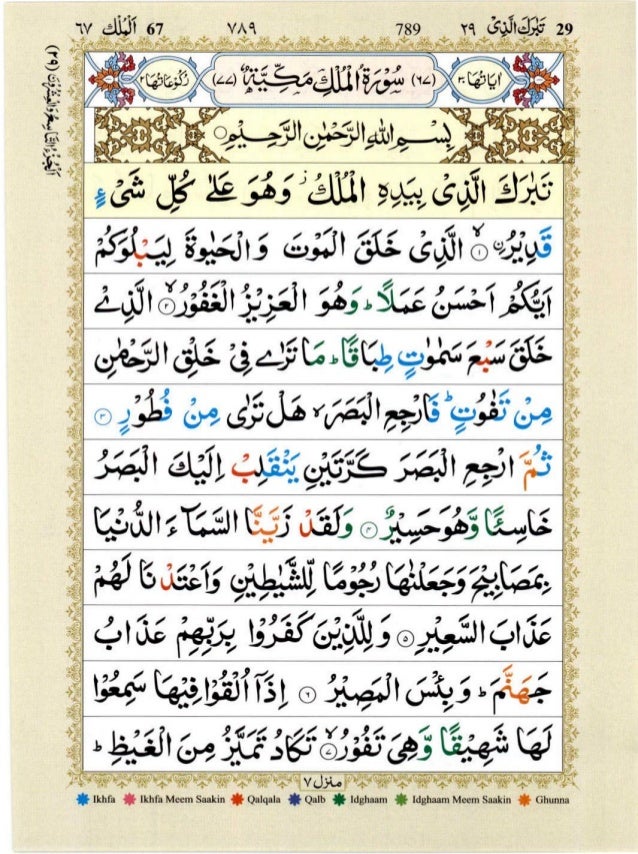 ٦٧ اَلْمُلْك 67 ٧٨٩ 789 تَبٰرَكَ الَّذِىْ ٢٩ 29
اٰيَاتُهَا ٣٠ (٦٧) سُوْرَةُ الْمُلْكِ مَكِّيَّةٌ (٧٧) رُكُوْعَاتُهَا ٢
بِسْمِ اللهِ الرَّحْمٰنِ الرَّحِيْمِ
تَبٰرَكَ الَّذِىْ بِيَدِهِ الْمُلْكُ ز وَهُوَ عَلٰى كُلِّ شَىْءٍ
قَدِيْرُ ۨ ۙ ۱ الَّذِىْ خَلَقَ الْمَوْتَ وَالْحَيٰوةَ لِيَبْلُوَكُمْ
اَيُّكُمْ اَحْسَنُ عَمَلًا ؕ وَهُوَ الْعَزِيْزُ الْغَفُوْرُ ۙ ۲ الَّذِىْ
خَلَقَ سَبْعَ سَمٰوٰتٍ طِبَاقًا ؕ مَا تَرٰى فِىْ خَلْقِ الرَّحْمٰنِ
مِنْ تَفٰوُتٍ ؕ فَارْجِعِ الْبَصَرَ ۙ هَلْ تَرٰى مِنْ فُطُوْرٍ ۳
ثُمَّ ارْجِعِ الْبَصَرَ كَرَّتَيْنِ يَنْقَلِبْ اِلَيْكَ الْبَصَرُ
خَاسِئًا وَّهُوَ حَسِيْرٌ ۴ وَلَقَدْ زَيَّنَّا السَّمَآءَ الدُّنْيَا
بِمَصَابِيْحَ وَجَعَلْنٰهَا رُجُوْمًا لِّلشَّيٰطِيْنِ وَاَعْتَدْنَا لَهُمْ
عَذَابَ السَّعِيْرِ ۵ وَلِلَّذِيْنَ كَفَرُوْا بِرَبِّهِمْ عَذَابُ
جَهَنَّمَ ؕ وَبِئْسَ الْمَصِيْرُ ۶ اِذَآ اُلْقُوْا فِيْهَا سَمِعُوْا
لَهَا شَهِيْقًا وَّهِىَ تَفُوْرُ ۙ ۷ تَكَادُ تَمَيَّزُ مِنَ الْغَيْظِ ؕ
منزل ٧
Ikhfa Ikhfa Meem Saakin Qalqala Qalb Idghaam Idghaam Meem Saakin Ghunna